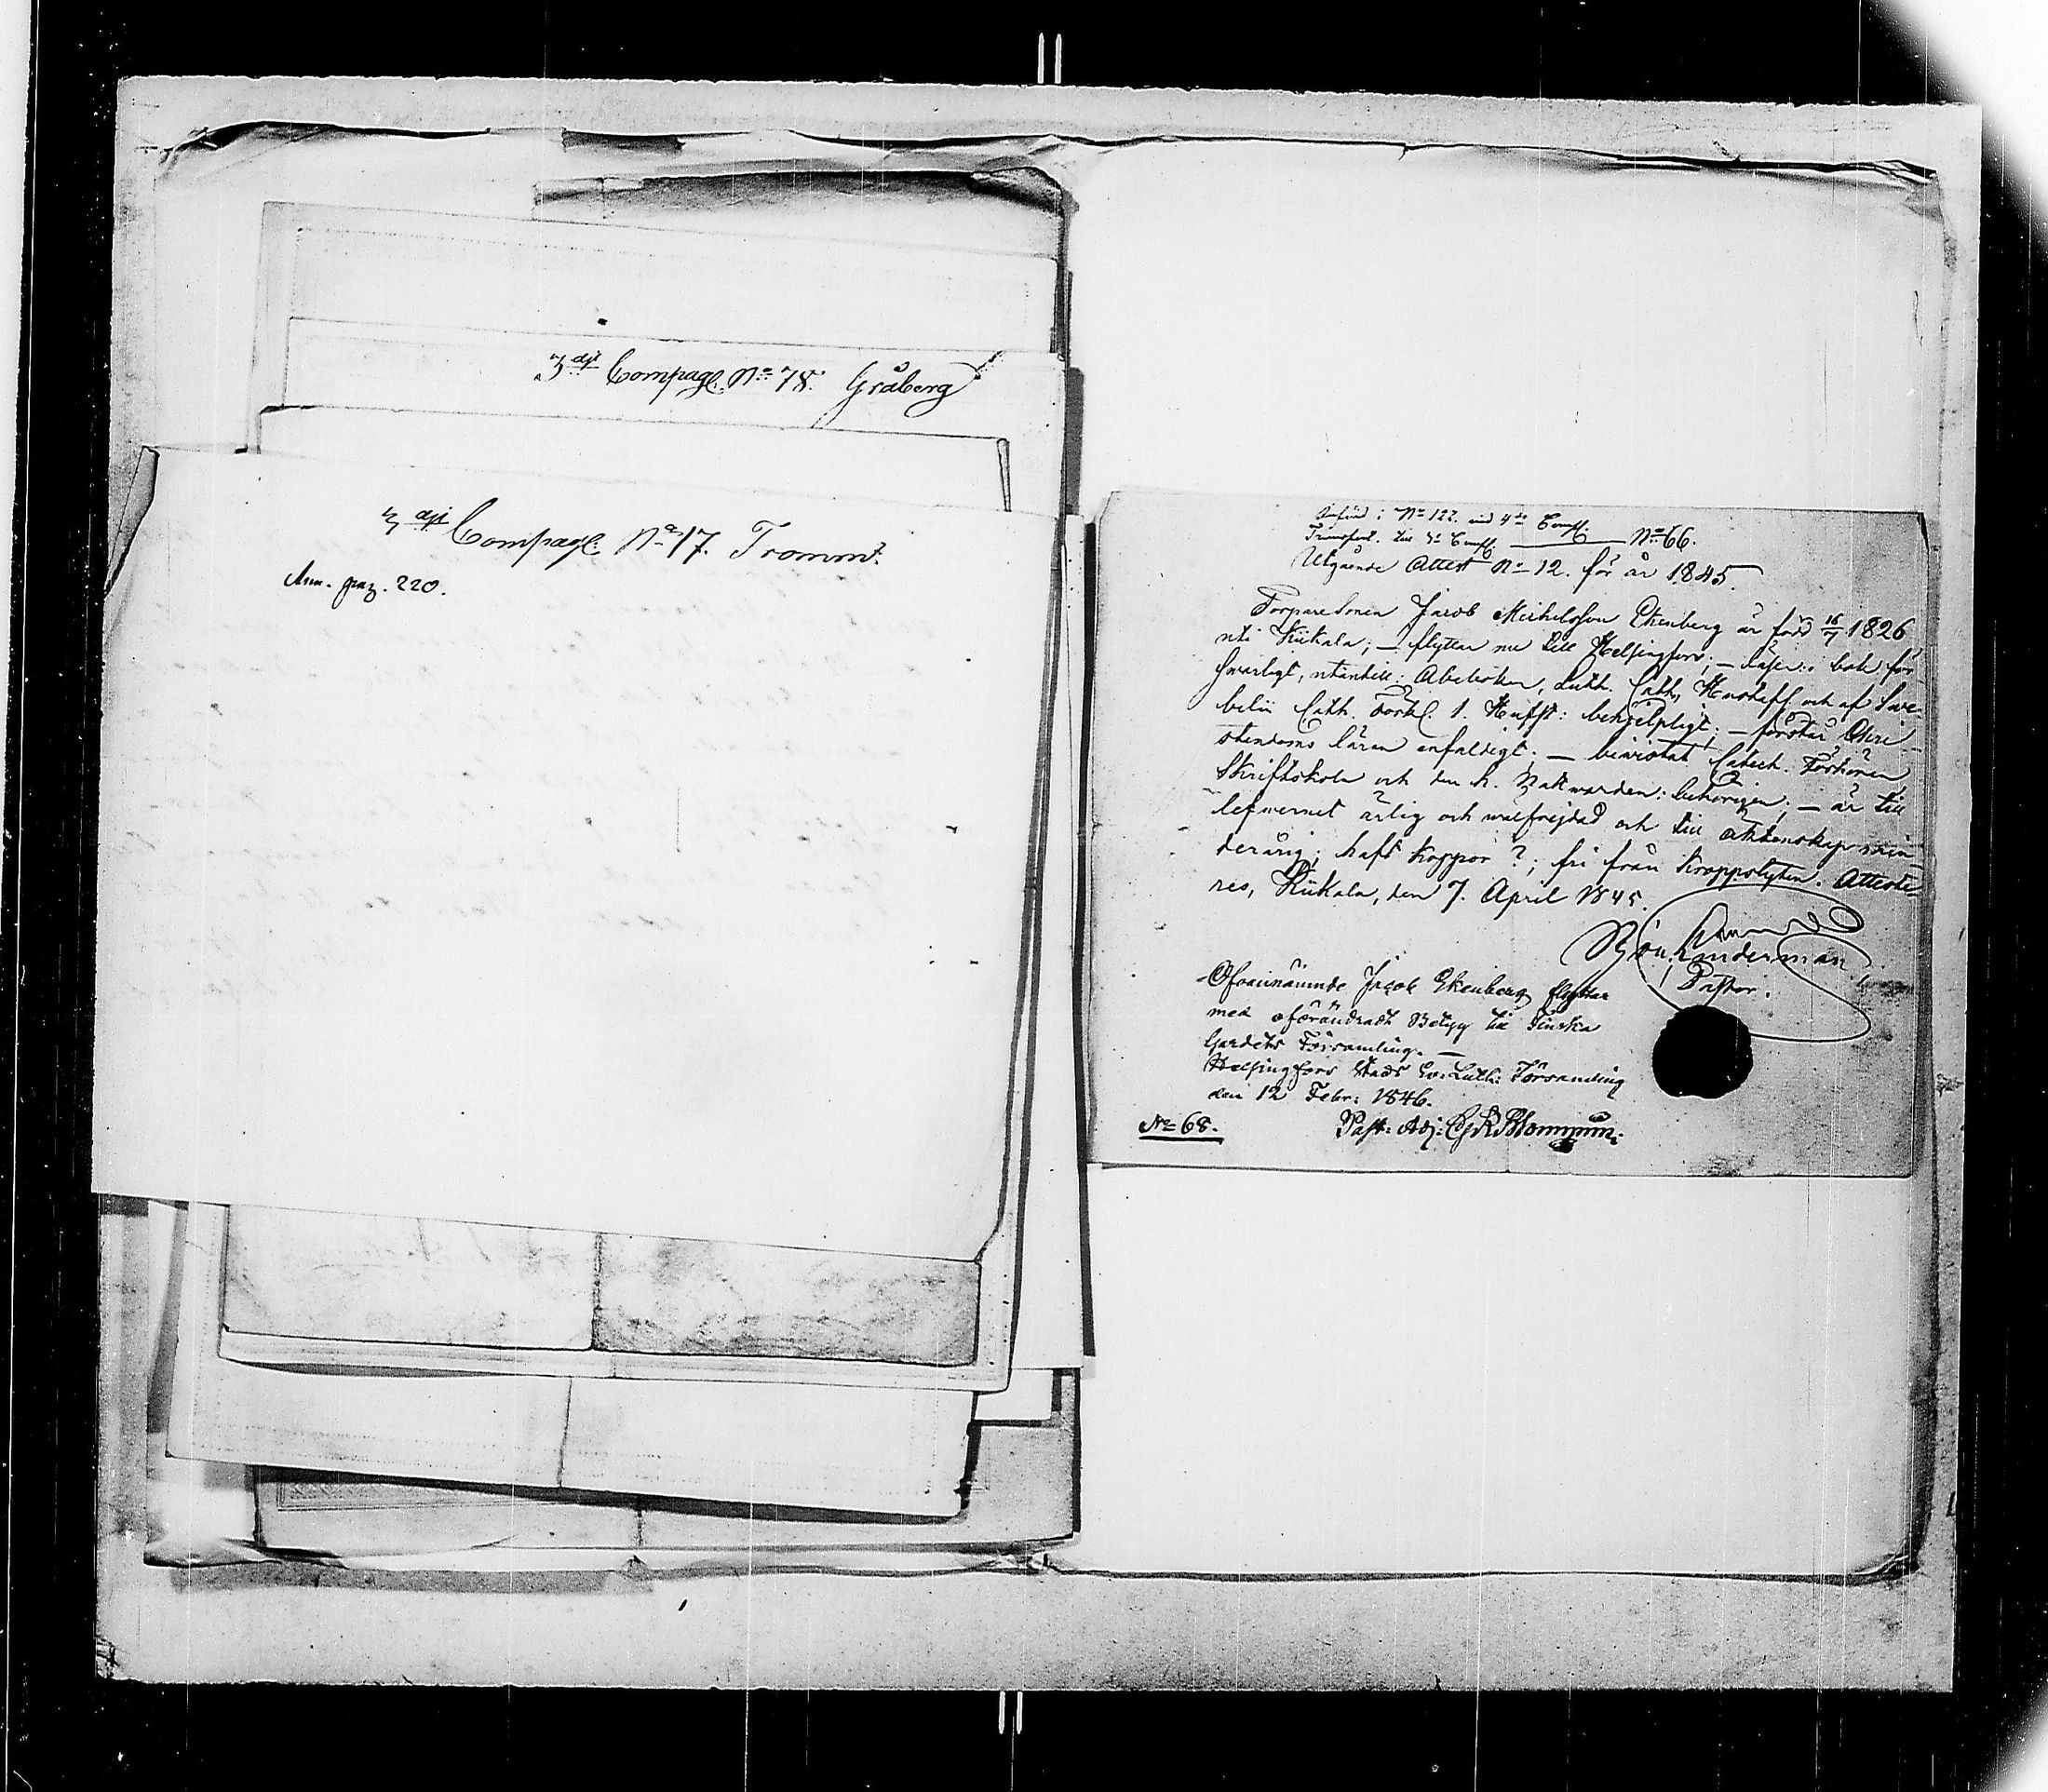 3dje Compagl. No 78. Gråberg
3dje Compagl. No 17. Tromm:
Ann. pag. 220.
Införd: No 122. vid 4de Comp.
Transport. till 3e Comp. No 66.
Utgående Attest No 12. för år 1845
Torpare Sonen Jacob Michelsson Ekenberg är född 16/7 1826
uti Kiikala; — flyttar nu till Helsingfors; — läser: i bok för-
svarligt, utantill: Abcboken, Luth. Cath, Hustafl. och af Swe-
belii Cath. Förkl. 1. Hufst: behjelpligt; — förstår Chri-
stendoms läran enfaldigt; — bevistat Catech. Förhören
Skriftskola och den h. Nattvarden: behörigen; — är till
lefvernet ärlig och wälfrejdad och till äktenskap min-
derårig; haft koppor ?; fri från kroppslyten. Atteste-
res, Kiikala, den 7. April 1845.
Linderman
Pastor.
Ofvannämnde Jacob Ekenberg flyttar
med oförändradt Betyg till Finska
Gardets Församling. —
Helsingfors Stads Ev. Luth: Församling
den 12 Febr: 1846.
No 68.
Past: Adj: